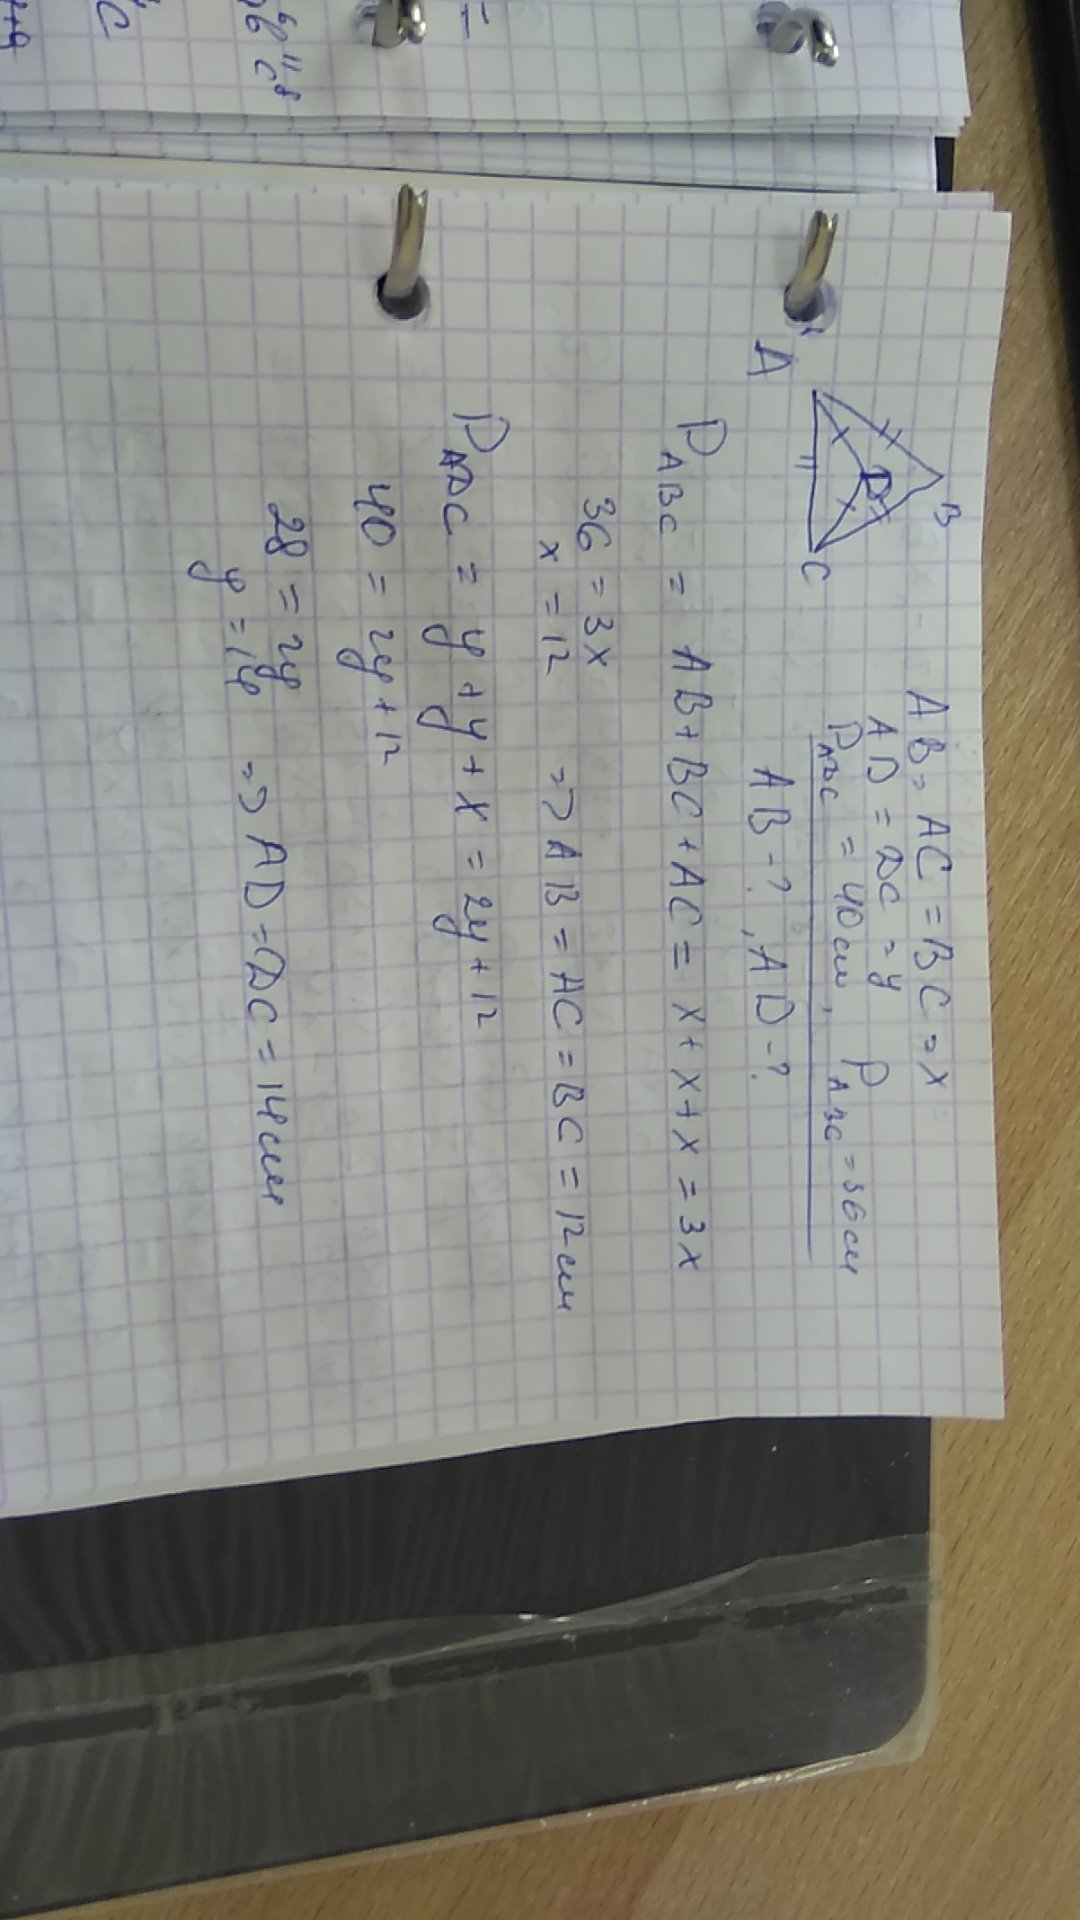 A
B
D
C
AB = AC = BC = x
AD = DC = y
P_ADC = 40 см, P_ABC = 36 см
AB - ?, AD - ?
P_ABC = AB + BC + AC = x + x + x = 3x
36 = 3x
x = 12 => AB = AC = BC = 12 см
P_ADC = y + y + x = 2y + 12
40 = 2y + 12
28 = 2y
y = 14 => AD = DC = 14 см